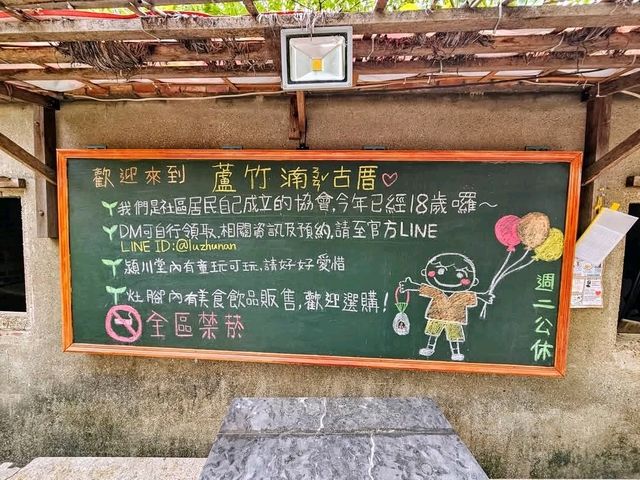 歡迎來到 蘆竹湳ㄋㄢˊ古厝♡
我們是社區居民自己成立的協會,今年已經18歲囉~
DM可自行領取,相關資訊及預約,請至官方LINE
LINE ID:@luzhunan
潁川堂內有童玩可玩,請好好愛惜
灶腳內有美食飲品販售,歡迎選購!
全區禁菸
週二公休